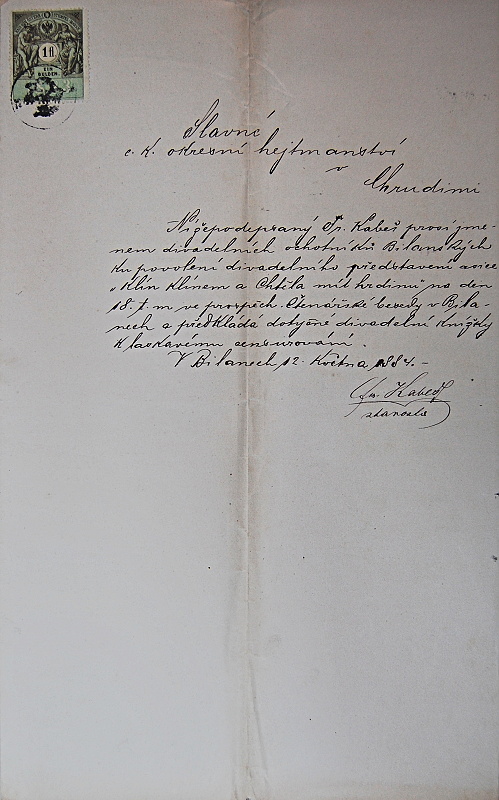 1 fl
EIN
GULDEN
Slavné
c. k. okresní hejtmanství
v
Chrudimi
Nížepodepsaný Fr. Kabeš prosí jme-
nem divadelních ochotníků Bilanských
ku povolení divadelního představení a sice
„Klín klinem a Chtěla mít hrdinu" na den
18. t. m ve prospěch Čtenářské besedy v Byla-
nech a předkládá dotyčné divadelní knížky
k laskavému censurování.
V Bilanech 12. Května 1884. –
Fr. Kabeš
starosta